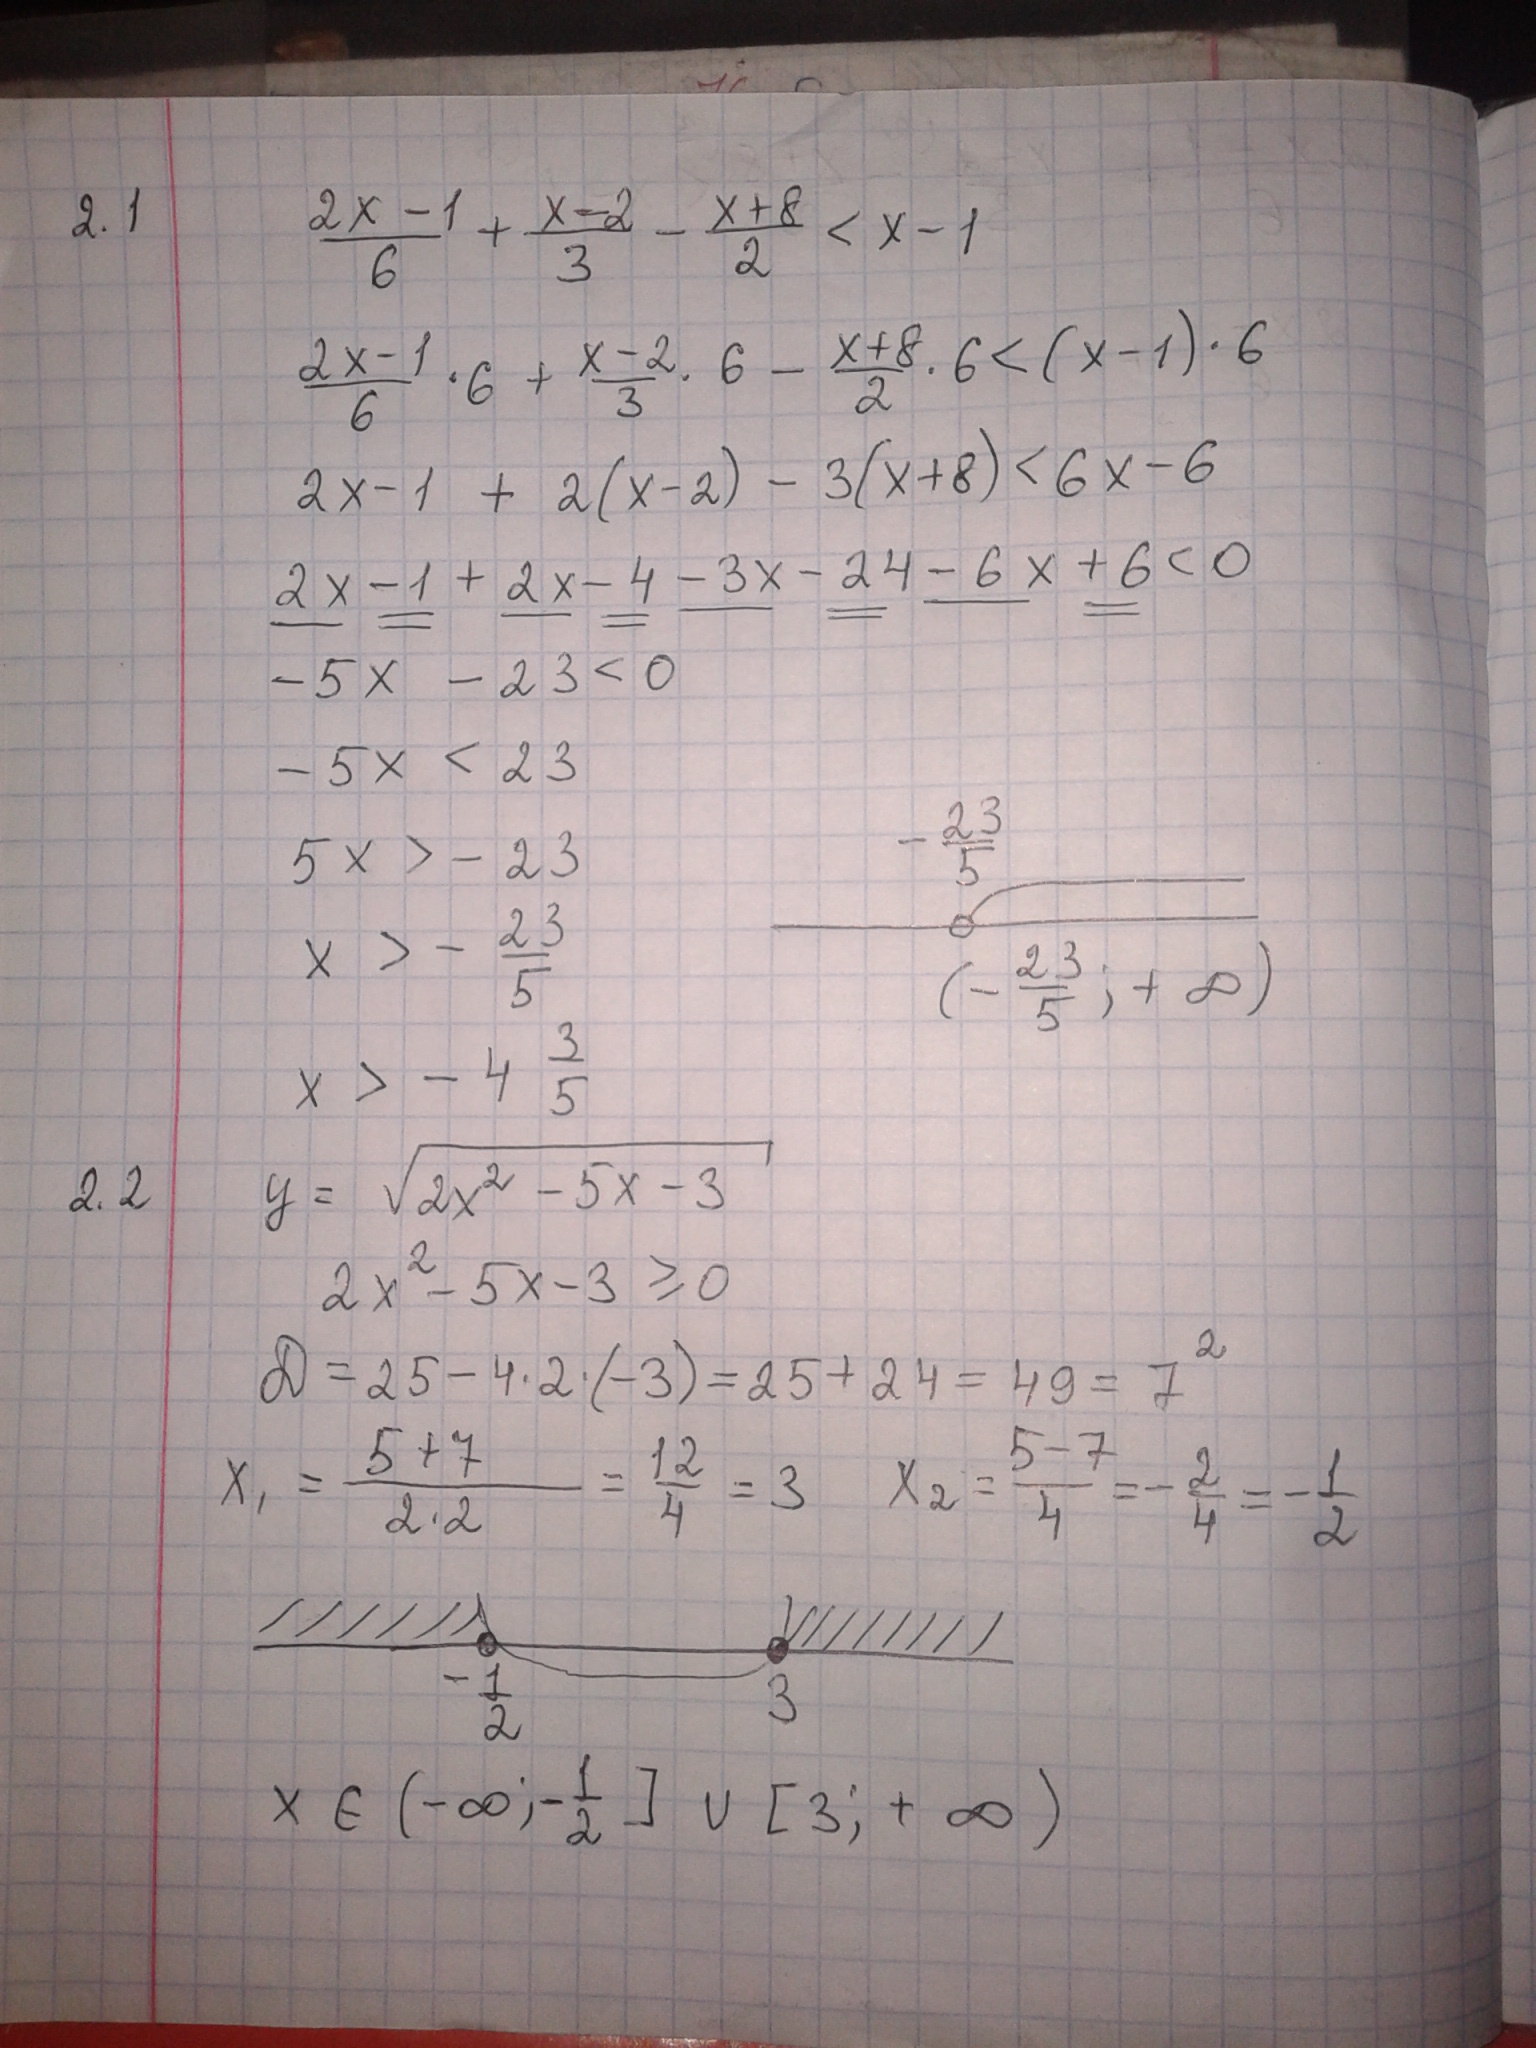 2.1 (2x-1)/6 + (x-2)/3 - (x+8)/2 < x-1
(2x-1)/6 · 6 + (x-2)/3 · 6 - (x+8)/2 · 6 < (x-1) · 6
2x-1 + 2(x-2) - 3(x+8) < 6x-6
2x-1 + 2x-4-3x-24-6x+6<0
-5x -23<0
-5x < 23
5x > -23
x > - 23/5
x > - 4 3/5
- 23/5
(- 23/5; + ∞)
2.2 y = √(2x² - 5x - 3)
2x² - 5x - 3 ≥ 0
D = 25 - 4·2·(-3) = 25 + 24 = 49 = 7²
x₁ = (5+7)/(2·2) = 12/4 = 3 x₂ = (5-7)/4 = - 2/4 = - 1/2
- 1/2 3
x ∈ (-∞; - 1/2] ∪ [3; + ∞)